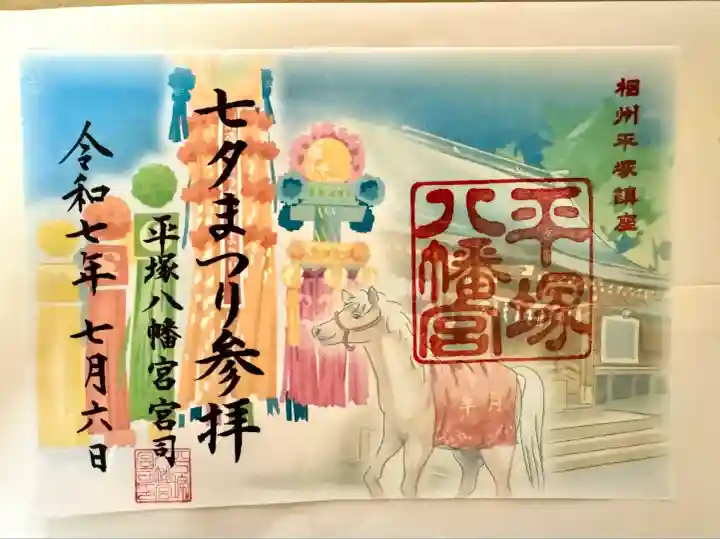 相州平塚鎮座
平塚
八幡宮
七夕まつり参拝
平塚八幡宮宮司
令和七年 七月六日